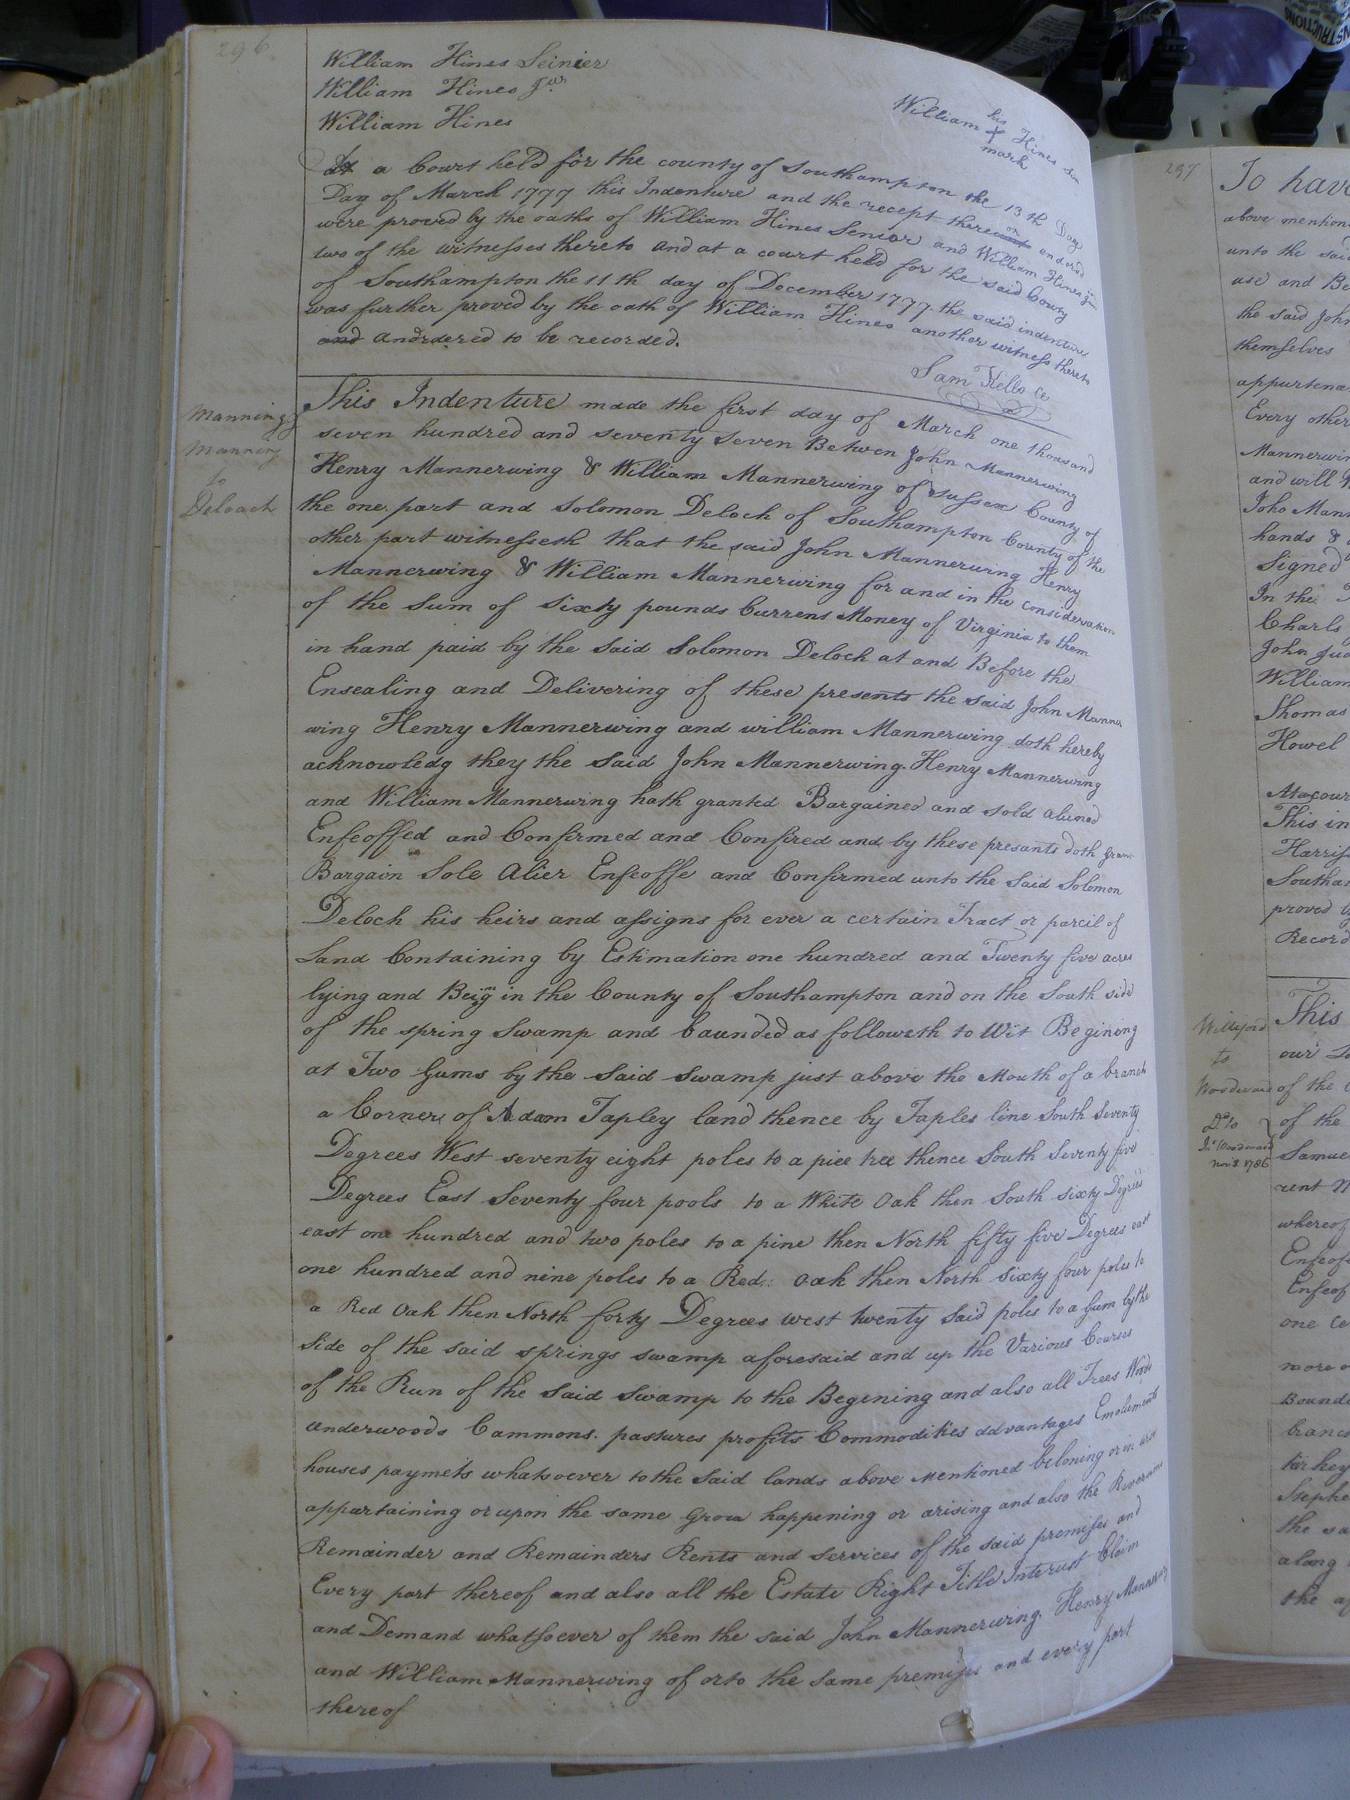 296
William Hines Seinier
William Hines Jur
William Hines
William his Hines Sen
+
mark
At a Court held for the county of Southampton the 13th Day
Day of March 1777 this Indenture and the recept thereon endorsd
were proved by the oaths of William Hines Senior and William Hines Jur
two of the witnesses thereto and at a court held for the said County
of Southampton the 11th day of December 1777 the said indenture
was further proved by the oath of William Hines another witness thereto
and andrdered to be recorded.
Sam Kello Ce
Manning &
Manning
to
Deloach
This Indenture made the first day of March one thousand
seven hundred and seventy seven Betwen John Mannerwing
Henry Mannerwing & William Mannerwing of Sussex County of
the one part and Solomon Deloch of Southampton County of the
other part witnesseth that the said John Mannerwing Henry
Mannerwing & William Mannerwing for and in the consideration
of the Sum of Sixty pounds Currens Money of Virginia to them
in hand paid by the said Solomon Deloch at and Before the
Ensealing and Delivering of these presents the said John Manner
wing Henry Mannerwing and william Mannerwing doth hereby
acknowledg they the said John Mannerwing Henry Mannerwing
and William Mannerwing hath granted Bargained and sold aliened
Enfeoffed and Confirmed and Confired and by these presants doth
Bargain Sole Alier Enfeoffe and Confirmed unto the Said Solomon
Deloch his heirs and assigns for ever a certain Tract or parcil of
Land Containing by Estimation one hundred and Twenty five acres
lying and Being in the County of Southampton and on the South side
of the spring Swamp and Counded as followeth to Wit Begining
at Two Gums by the Said Swamp just above the Mouth of a branch
a Corner of Adam Tapley land thence by Taples line South Seventy
Degrees West seventy eight poles to a piee tree thence South Seventy five
Degrees East Seventy four pools to a White Oak then South sixty Degrees
east one hundred and two poles to a pine then North fifty five Degrees east
one hundred and nine poles to a Red Oak then North Sixty four poles to
a Red Oak then North forty Degrees west twenty Said poles to a Gum by the
Side of the said springs swamp aforesaid and up the Various Courses
of the Run of the Said Swamp to the Begening and also all Trees Woods
underwoods Cammons pastures profits Commodities advantages Emoluments
houses paymets whatsoever to the Said lands above mentioned beloning or in
appartaining or upon the same Grow happening or arising and also the
Remainder and Remainders Rents and Services of the said premises and
Every part thereof and also all the Estate Right Title Interust Claim
and Demand whatsoever of them the said John Mannerwing Henry Mannerwing
and William Mannerwing of or to the same premises and every part
thereof
297
To have
above mention
unto the said
use and Be
the said John
themselves
appurtena
Every other
Mannerwin
and will
John Mann
hands &
Signed
In the
Charls
John Jud
William
Thomas
Howel
At a cour
This in
Harris
Southa
proved
Record
Williford
to
Woodward
Do to
Jn Woodward
nov 8 1786
This
our
of the
of the
Samue
rent
whereof
Enfeof
Enfeof
one
more o
Bound
branc
turkey
Stephe
the sa
along
the